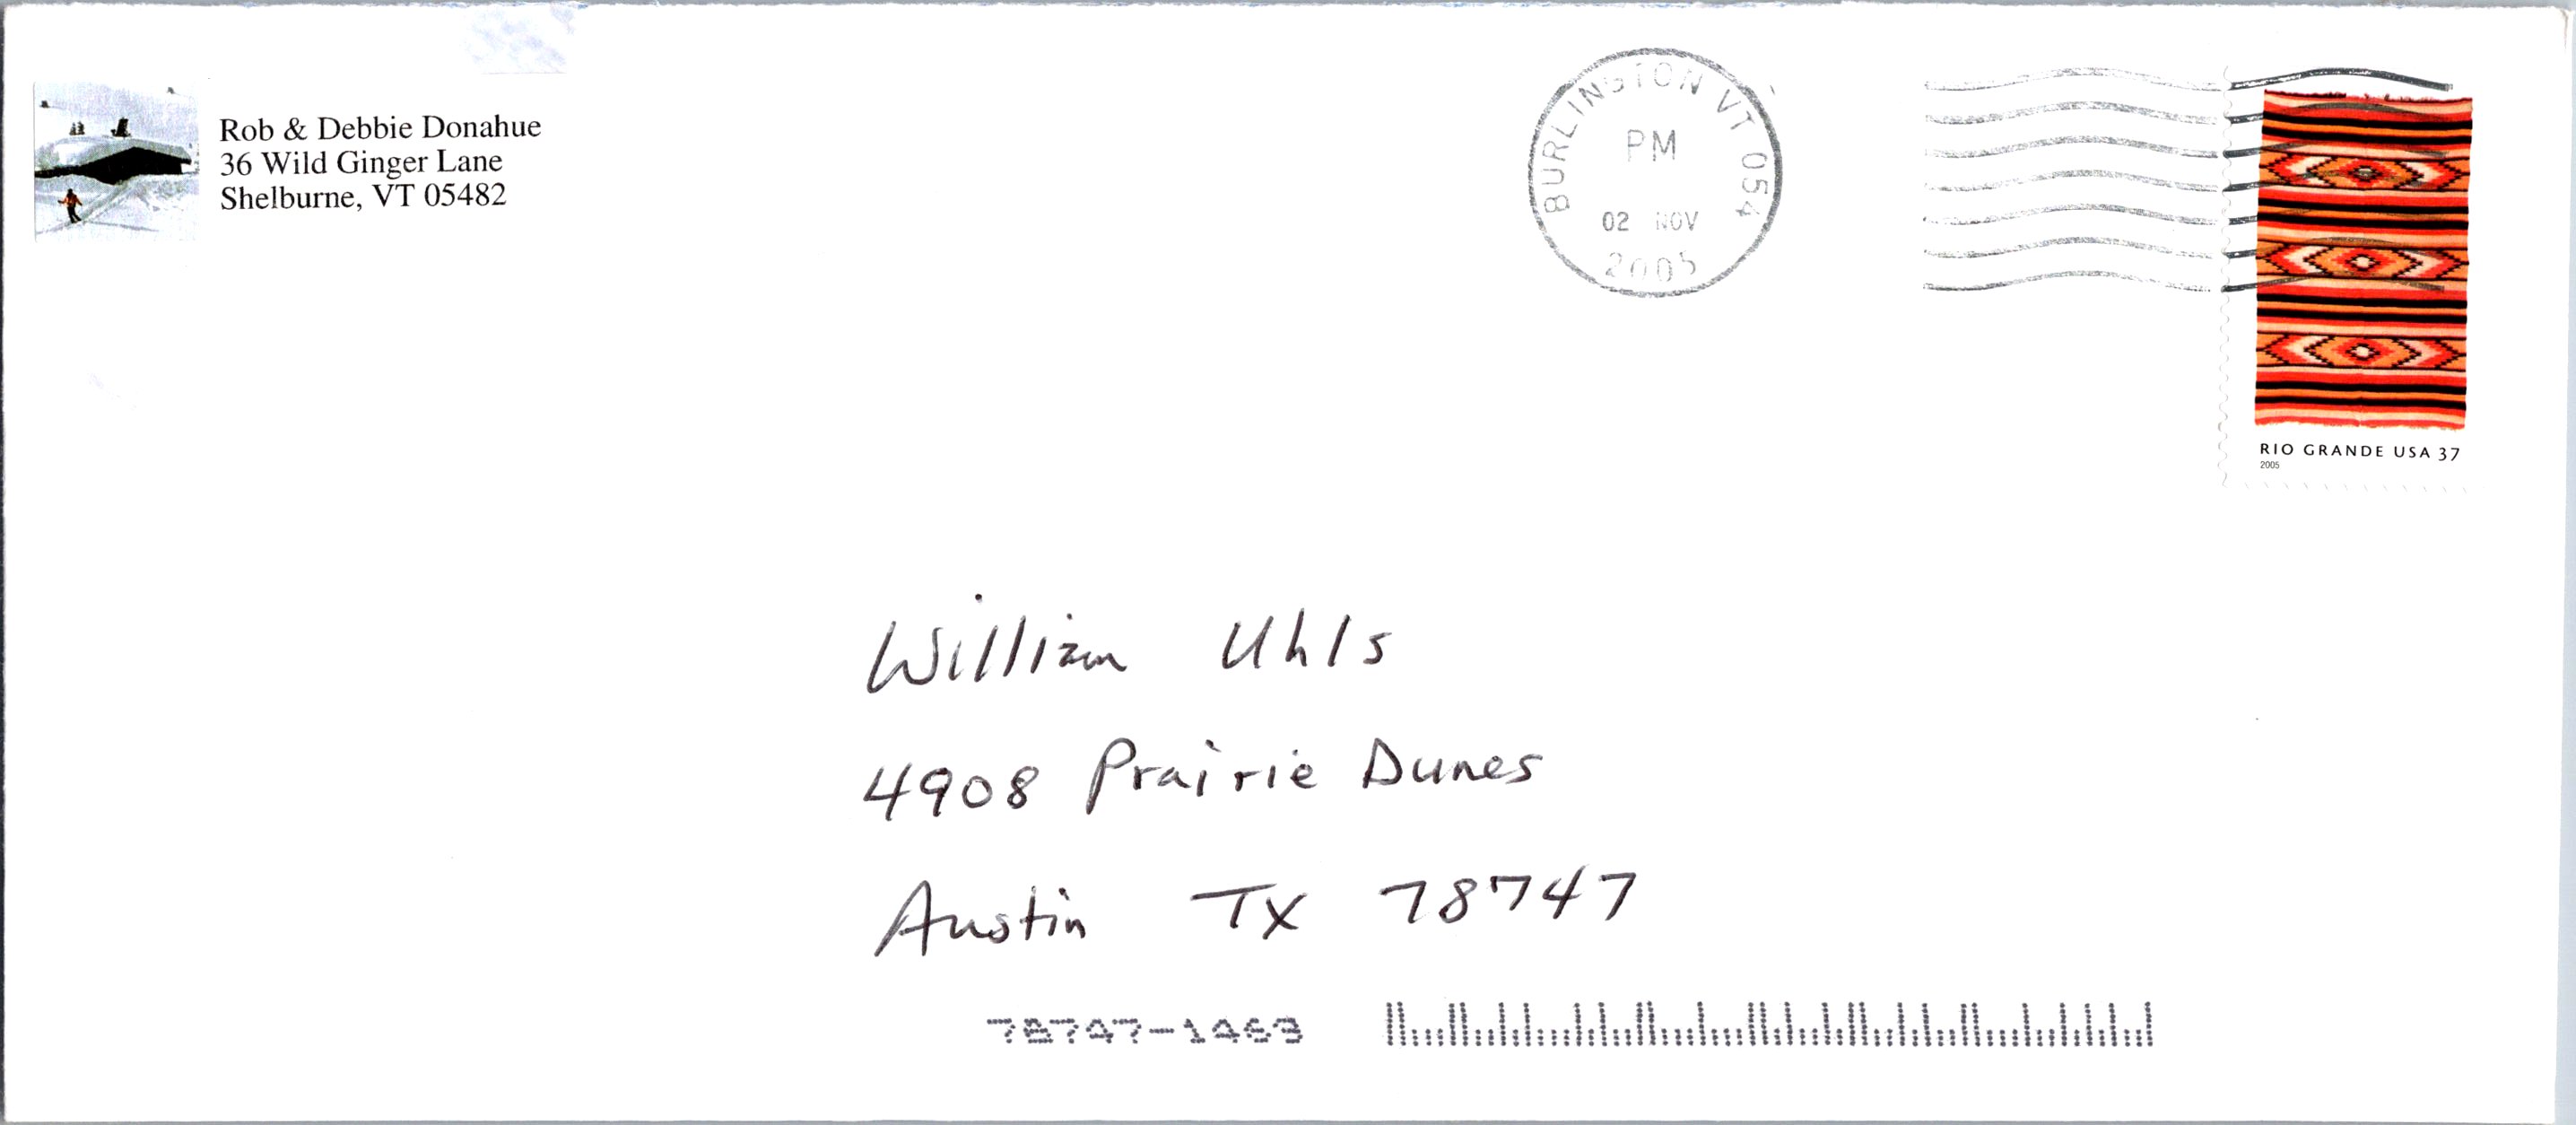 Rob & Debbie Donahue
36 Wild Ginger Lane
Shelburne, VT 05482
BURLINGTON VT 054
PM
02 NOV
2005
RIO GRANDE USA 37
2005
William Uhls
4908 Prairie Dunes
Austin TX 78747
78747-1463